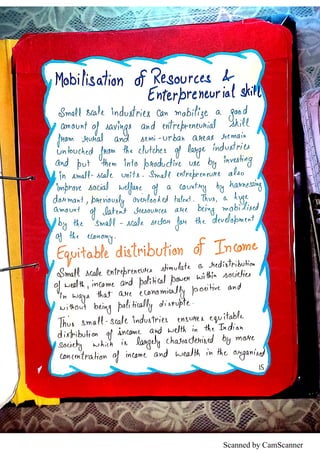 Mobilisation of Resources &
Enterpreneurial skill
Small scale industries can mobilize a good
amount of savings and entrepreneurial skill
from rural and semi-urban areas remain
untouched from the clutches of large industries
and put them into productive use by investing
in small-scale units. Small entrepreneurs also
improve social welfare of a country by harnessing
dormant, previously overlooked talent. Thus, a huge
amount of latent resources are being mobilised
by the small-scale sector for the development
of the economy.
Equitable distribution of Income
Small scale entrepreneurs stimulate a redistribution
of wealth, income and political power within societies
in ways that are economically positive and
without being politically disruptive.
Thus small-scale industries ensures equitable
distribution of income and welth in the Indian
society which is largely characterised by more
concentration of income and wealth in the organised
15
Scanned by CamScanner